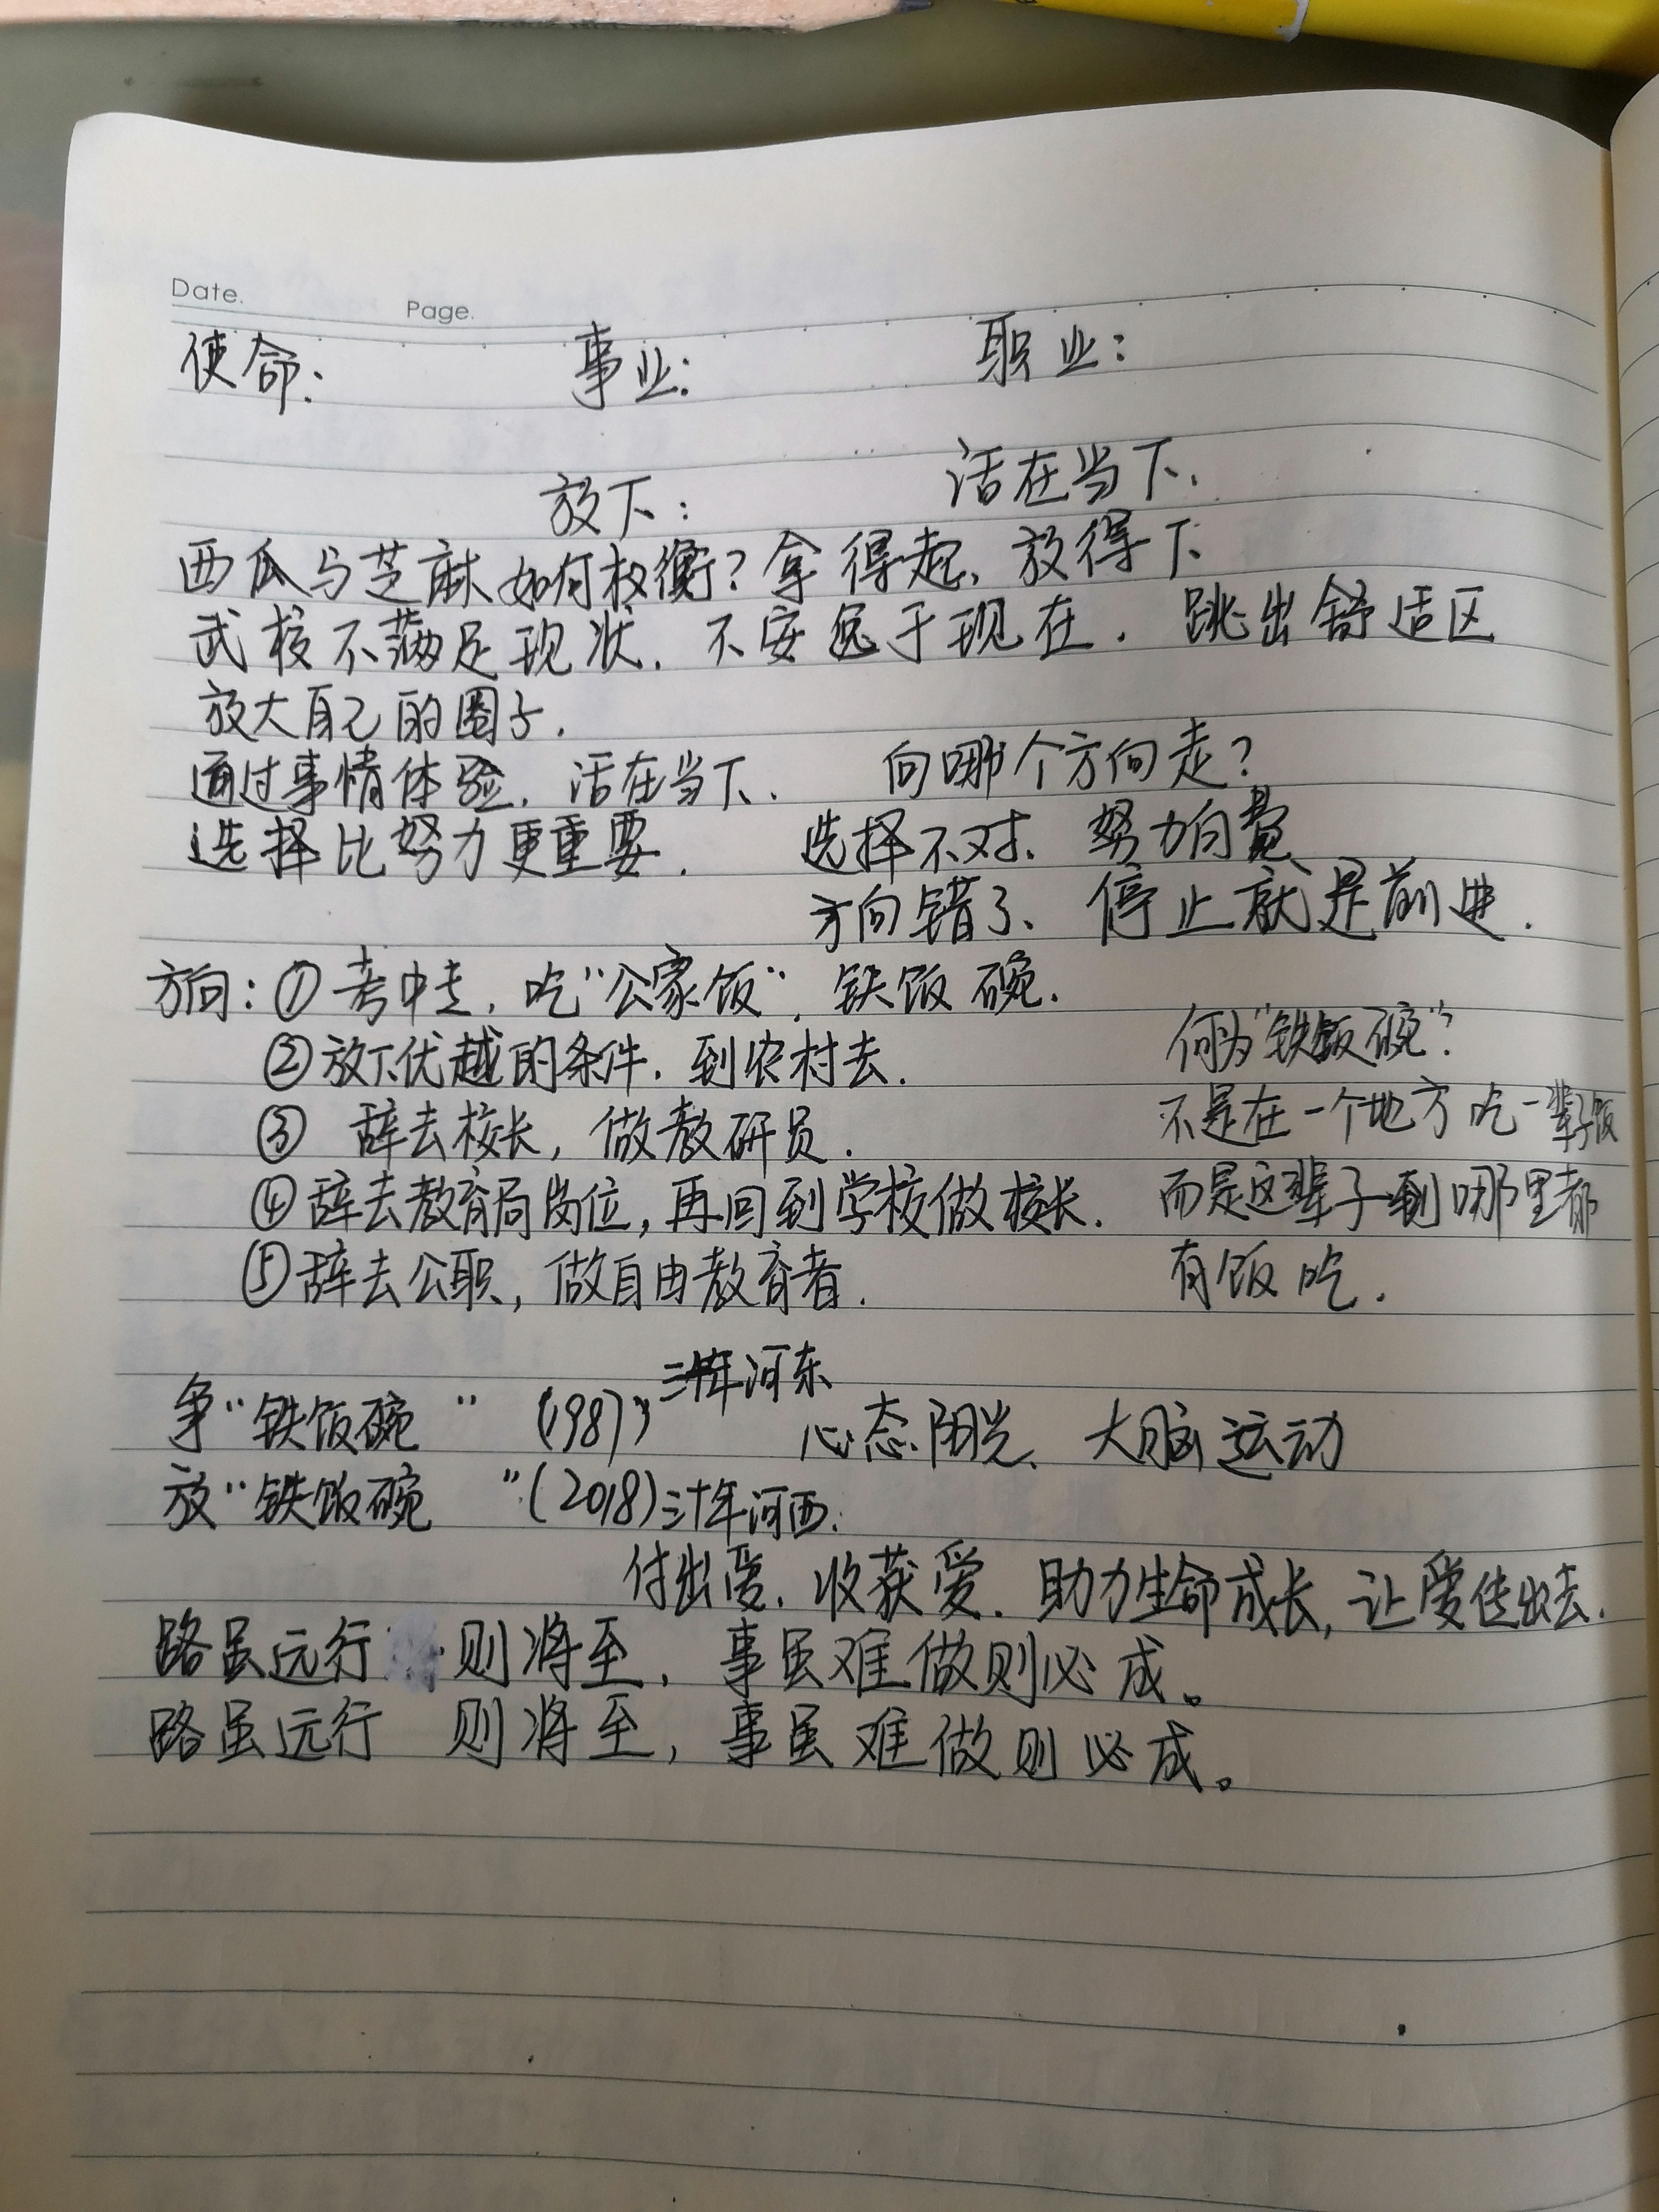 Date.
Page.
使命： 事业： 职业：
放下： 活在当下.
西瓜与芝麻如何权衡？拿得起、放得下
武校不满足现状. 不安逸于现在. 跳出舒适区
放大自己的圈子.
通过事情体验. 活在当下. 向哪个方向走？
选择比努力更重要. 选择不对、努力白费
方向错了、停止就是前进.
方向：①考中走，吃“公家饭”. 铁饭碗.
②放下优越的条件. 到农村去. 何为“铁饭碗”？
③ 辞去校长，做教研员. 不是在一个地方吃一辈子饭
④辞去教育局岗位，再回到学校做校长. 而是这辈子到哪里都
⑤辞去公职，做自由教育者. 有饭吃.
争“铁饭碗” (1987) 三十年河东 心态阳光、大脑运动
放“铁饭碗”(2018)三十年河西.
付出爱. 收获爱. 助力生命成长, 让爱传出去.
路虽远行 则将至，事虽难做则必成。
路虽远行 则将至，事虽难做则必成。